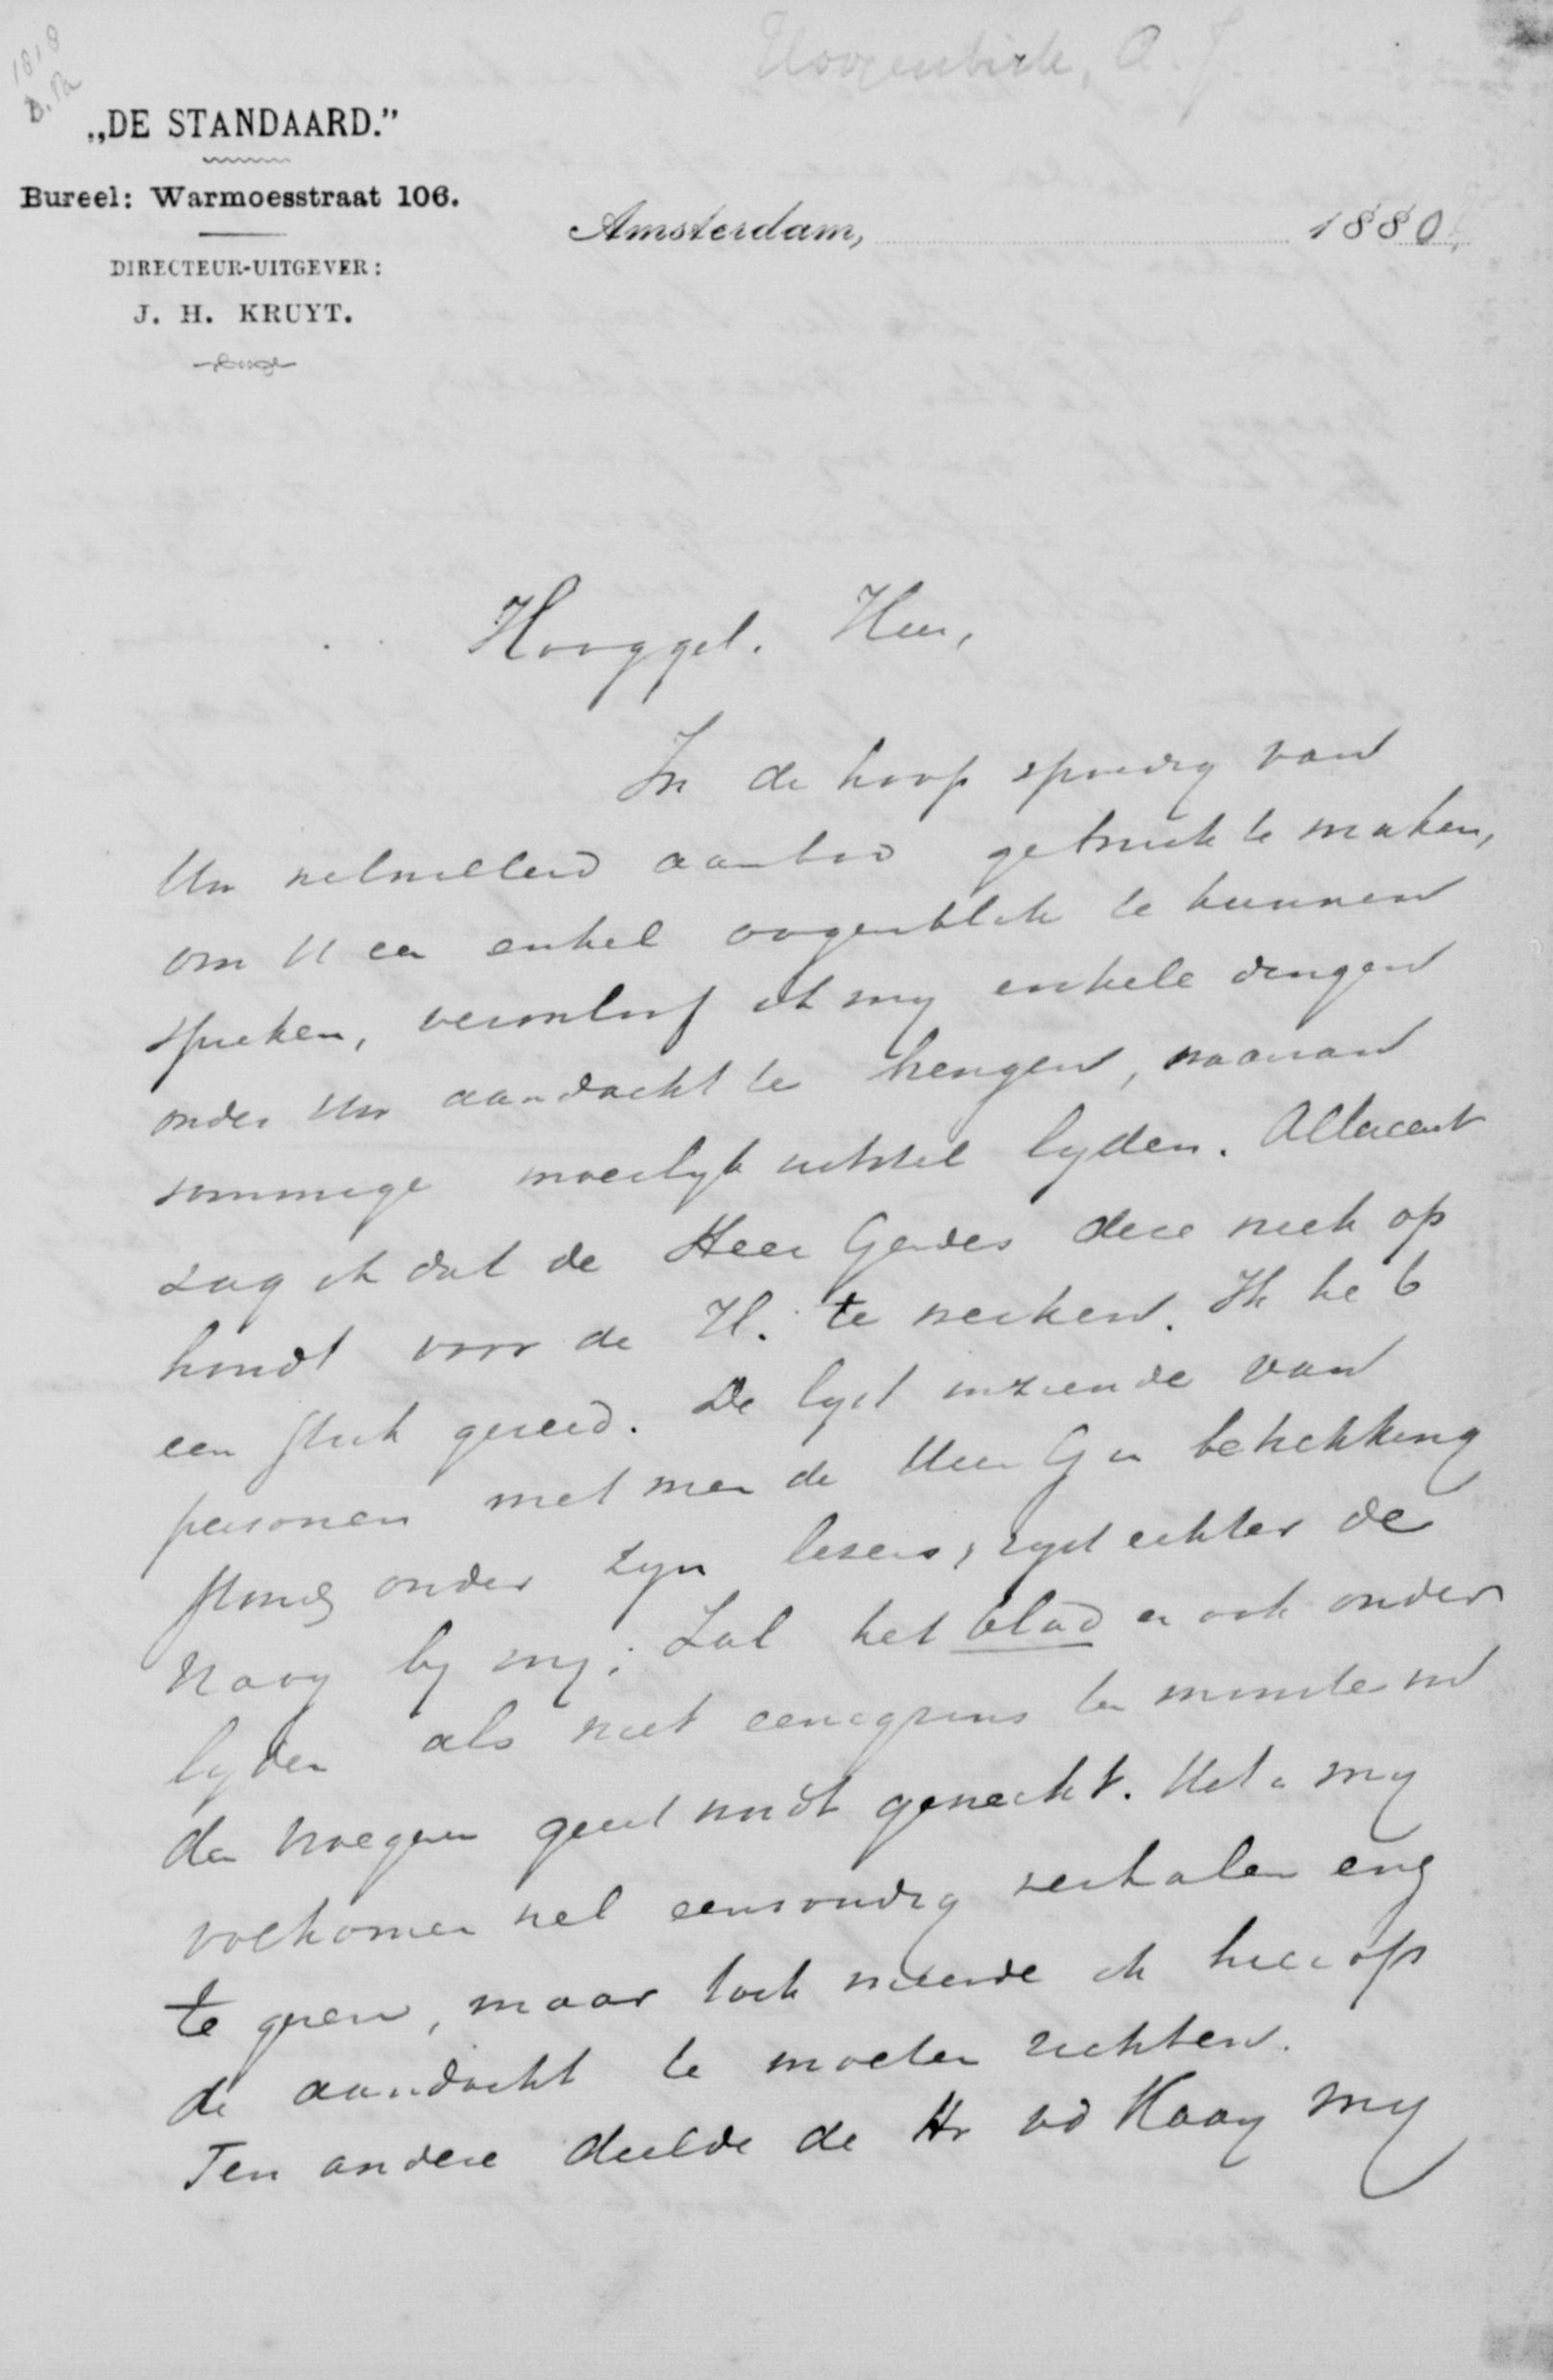 1818
Hoogenbirk, A. J.
„DE STANDAARD.”
Bureel: Warmoesstraat 106.
Amsterdam, 1880.
DIRECTEUR-UITGEVER:
J. H. KRUYT.
Hooggel. Heer,
In de hoop spoedig van
Uw welwillend aanbod gebruik te maken,
om U een enkel oogenblik te kunnen
spreken, veroorloof ik mij enkele dingen
onder Uw aandacht te brengen, waarvan
sommige moeilijk uitstel lijden. Allereerst
zag ik dat de Heer Gerdes deze week op
houdt voor de H. te werken. Ik heb
een stuk gereed. De lijst inziende van
personen met wien de Heer G in betrekking
stond onder zijn lezers, rijst echter de
vraag bij mij: Zal het blad er ook onder
lijden als niet eenigzins ten minste in
den vroegeren geest wordt gewerkt. Het is mij
volkomen wel eenvoudig verhalen enz
te geven, maar toch meende ik hierop
de aandacht te moeten richten.
Ten andere deelde de Hr vd Haay mij